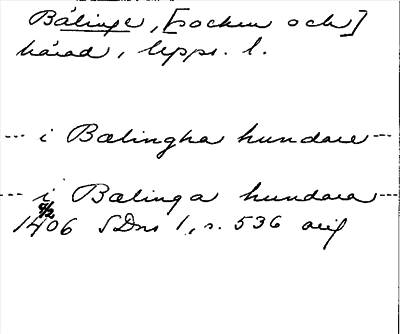 Bälinge, [socken och]
härad, Upps. l.
--- i Bælingha hundare ---
--- i Bælinga hundara ---
9/2
1406 SDns 1, s. 536 orig